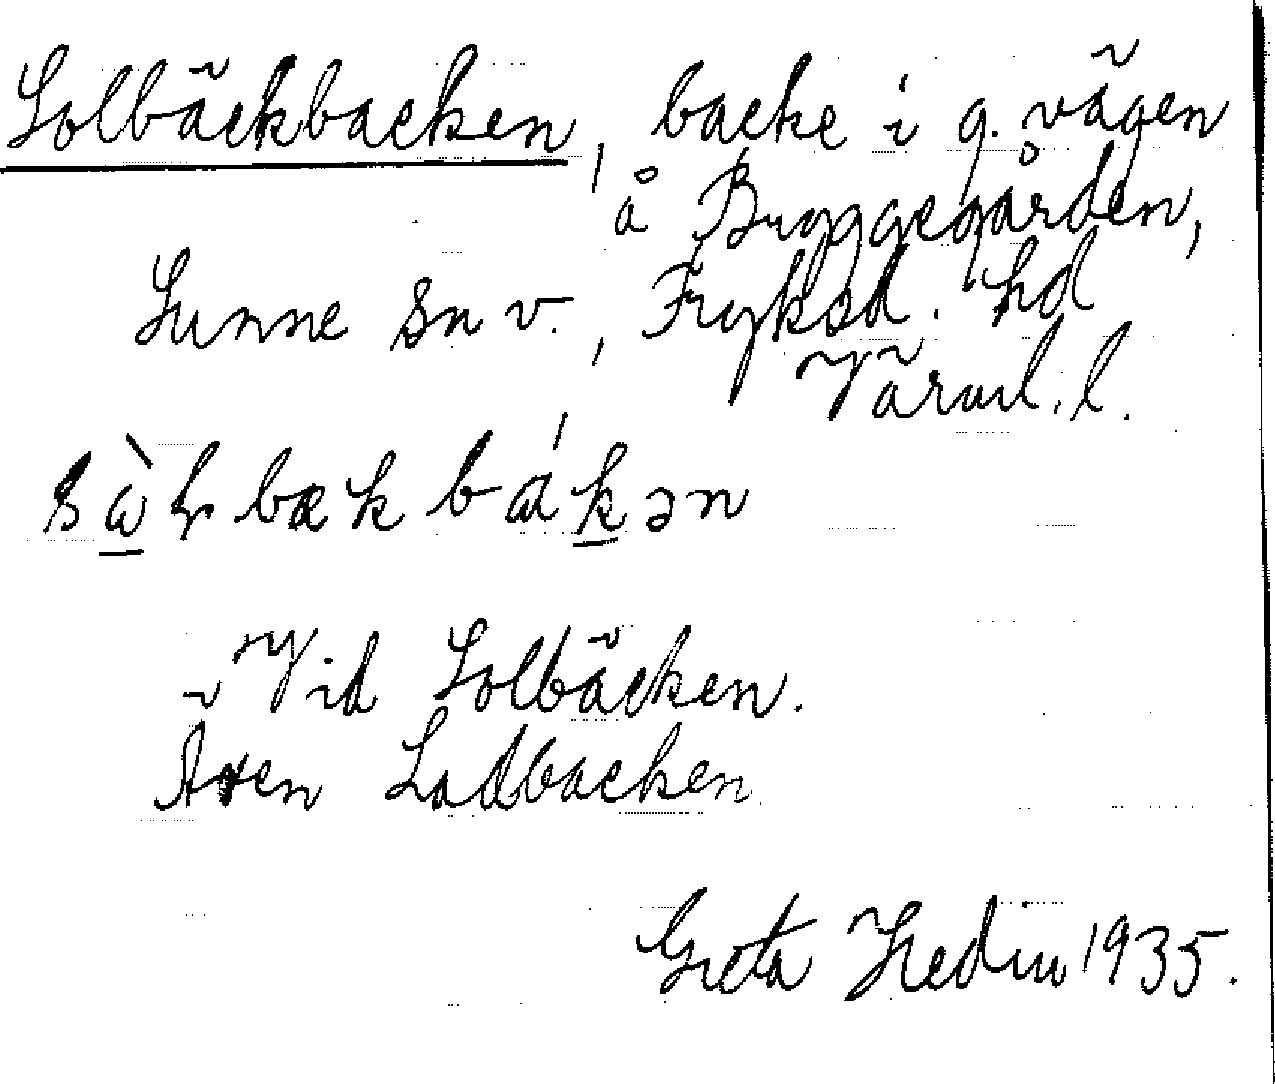 Solbäckbacken, backe i g. vägen
å Bryggegården,
Sunne sn v., Fryksd. hd
Värml. l.
Vid Solbäcken.
Även Ladbacken
Greta Hedin 1935.